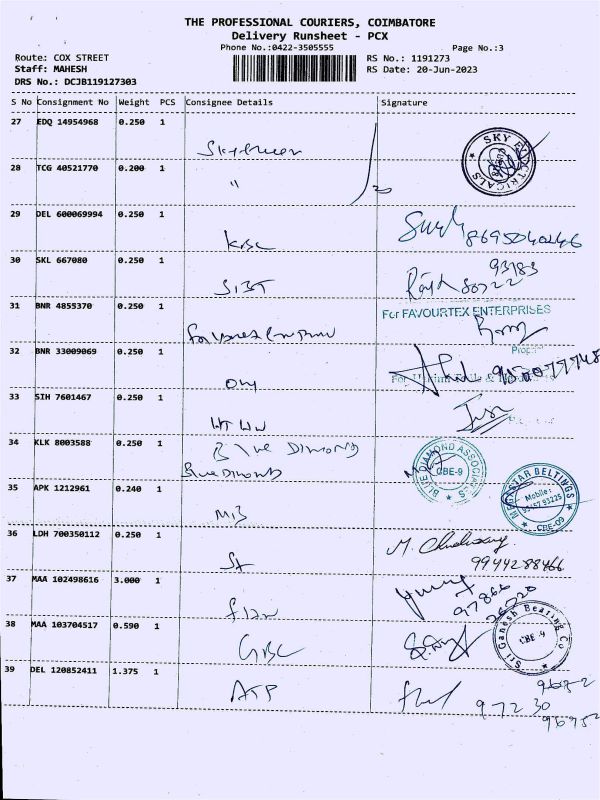 THE PROFESSIONAL COURIERS, COIMBATORE
Delivery Runsheet - PCX
Phone No.:0422-3505555 Page No.:3
Route: COX STREET RS No.: 1191273
Staff: MAHESH RS Date: 20-Jun-2023
DRS No.: DCJB119127303
S No Consignment No Weight PCS Consignee Details Signature
27 EDQ 14954968 0.250 1
SKY ELECTRICALS
28 TCG 40521770 0.200 1 "
29 DEL 600069994 0.250 1
KBC 8695040246
30 SKL 667080 0.250 1
SIBT 93183
80722
31 BNR 4855370 0.250 1
For FAVOURTEX ENTERPRISES
32 BNR 33009069 0.250 1
33 SIH 7601467 0.250 1
34 KLK 8003588 0.250 1
Blue Dimond
Blue Dimonds
BLUE DIAMOND ASSOCIATES
CBE-9
35 APK 1212961 0.240 1
MEGASTAR BELTINGS
Mobile:
95157 93225
CBE-09
36 LDH 700350112 0.250 1
9944288466
37 MAA 102498616 3.000 1
97866
26720
38 MAA 103704517 0.590 1
GBC
Sri Ganesh Bearing Co.
CBE-9
39 DEL 120852411 1.375 1
ATP
97230